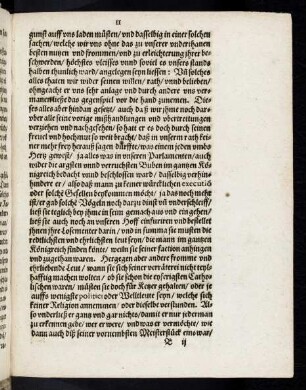 II
gunst auff vns laden müsten/ vnd dasselbig in einer solchen
sachen/ welche wir vns ohne das zu vnserer vnderthanen
besten nutzen vnd frommen/ vnd zu erleichterung jhrer be-
schwerden/ höchstes vleisses vnnd souiel es vnsers stands
halben thunlich ward/ angelegen seyn liessen: Vñ solches
alles thaten wir wider seinen willen/ rath/ vnnd belieben/
ohngeacht er vns sehr anlage vnd durch andere vns ver-
manen ließ das gegenspiel vor die hand zunemen. Die-
ses alles aber hindan gesetz/ auch daß wir jhme noch dar-
uber alle seine vorige mißhandlungen vnd vbertrettungen
verziehen vnd nachgesehen/ so hatt er es doch durch seinen
freuel vnd hochmut so weit bracht/ daß in vnserm rath fei-
ner mehr frey herauß sagen dürffte/ was einem jeden vmbs
Hertz gewest/ ja alles was in vnserer Parlamenten/ auch
wider die ärgsten vnnd verruchsten Buben im gantzen Kö-
nigreich bedacht vnnd beschlossen ward/ dasselbig verhin-
hindere er/ also daß mann zu keiner würcklichen executiō
oder solche Gesellen bezkommen möcht/ ja das noch mehr
ist/ er gab solche Vögeln noch darzu dinst vñ vnderschleiff/
ließ sie täglich bey jhme in seim gemach auß vnd ein gehen/
ließ sie auch noch an vnseren Hoff einfurieren vnd bestellet
jhnen jhre Losementer darin/ vnd in summa sie musten die
redtlichsten vnd ehrlichsten leut seyn/ die mann im gantzen
Königreich finden könte/ wein sie seiner faction anhiengen
vnd zugethan waren. Hergegen aber andere fromme vnd
ehrliebende Leut/ wann sie sich seiner verräterei nicht teyl-
hafftig machen wolten/ ob sie schon die eyferigsten Catho-
lischen waren/ müsten sie doch für Ketzer gehalten/ oder je
auffs wenigste politici oder Weltleute seyn/ welche sich
keiner Religion annemmen/ oder dieselbe verstunden. Al-
so vnderließ er gantz vnd gar nichts/ damit er nur jederman
zu erkennen gebe/ wer er were/ vnd was er vermöchte/ wie
dann auch diß seiner vornembsten Meisterstück eins war/
ij